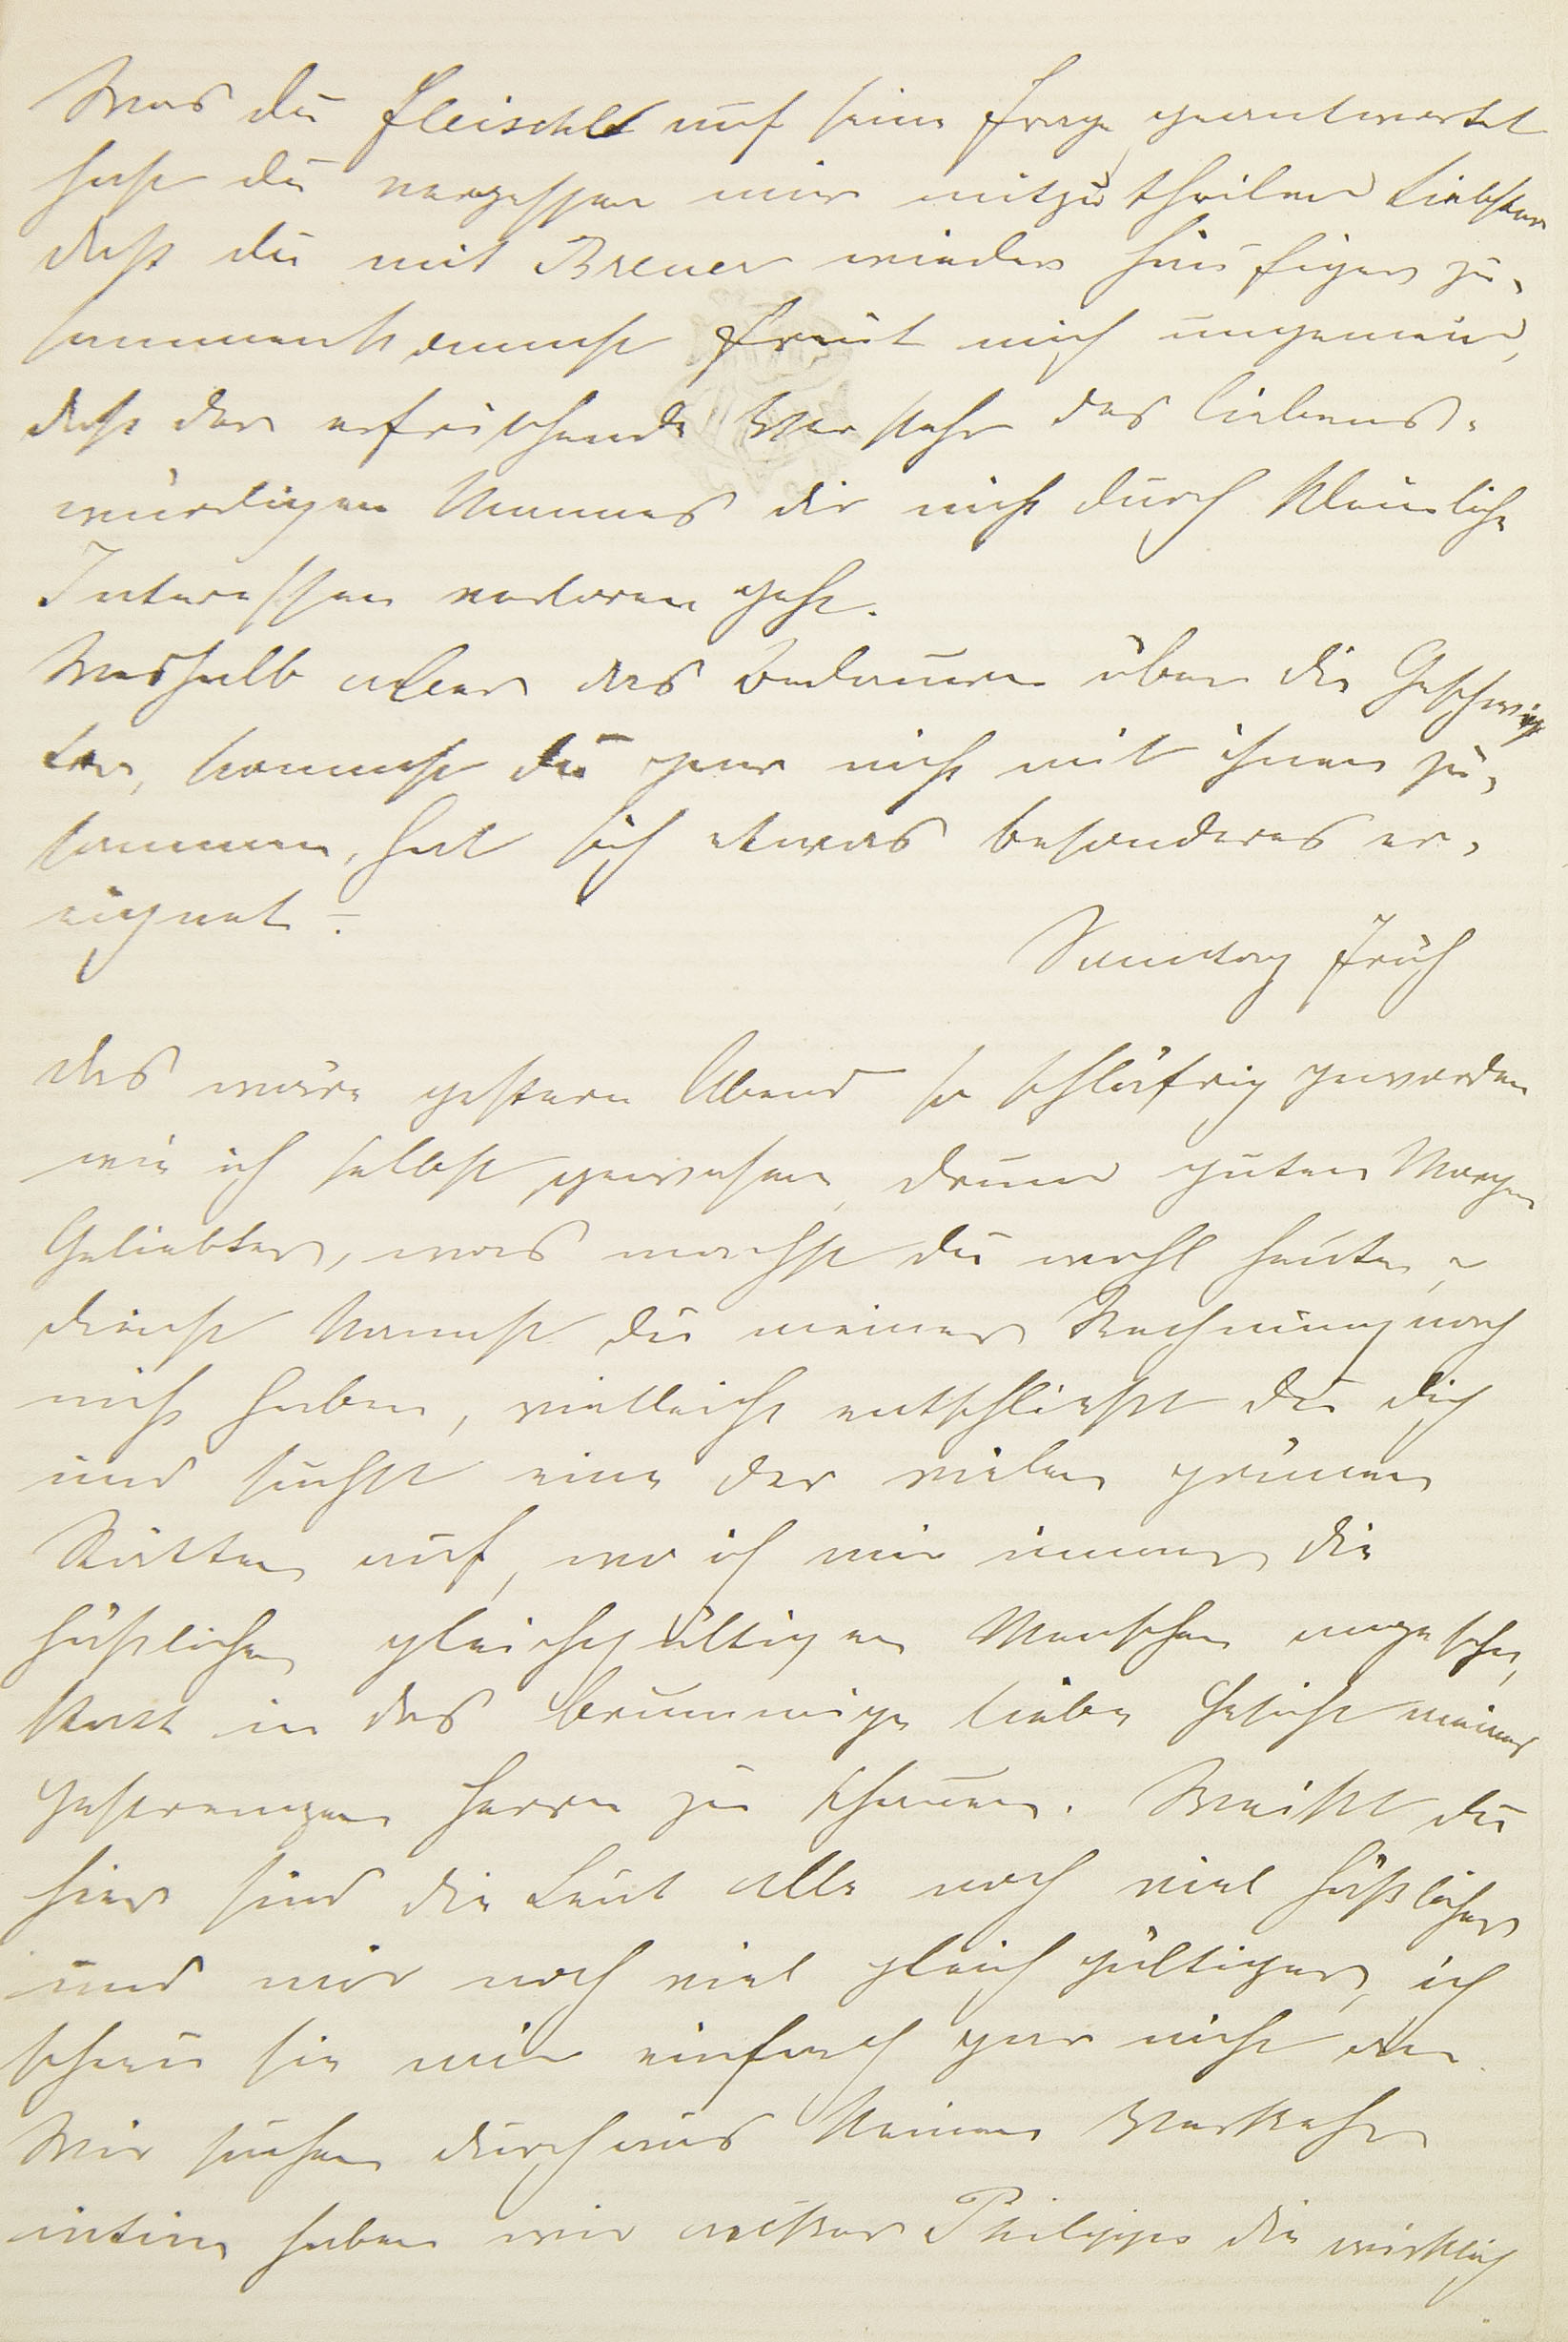 Was du Fleischl auf seine Frage geantwortet
hast du vergessen mir mitzutheilen Liebster
daß du mit Breuer wieder häufiger zu-
sammenkommst freut mich ungemein,
daß der erfrischende Verkehr des liebens-
würdigen Mannes dir nicht durch kleinliche
Interessen verloren geht.
Weshalb aber das Bedauern über die Geschwis
ter, kommst du gar nicht mit ihnen zu-
sammen, hat sich etwas besonderes er-
eignet?
Sonntag Früh
das wäre gestern Abend so schläfrig geworden
wie ich selbst gewesen, drum guten Morgen
Geliebter, was machst du wohl heute,
dienst kannst du meiner Rechnung nach
nicht haben, vielleicht entschließt du dich
und suchst eine der vielen grünen
Stätten auf, wo ich mir immer die
häßlichen gleichgültigen Menschen angesehen,
statt in das brummige liebe Gesicht meines
gestrengen Herrn zu schauen. Weißt du
hier sind die Leut alle noch viel häßlicher
und mir noch viel gleichgültiger, ich
schau sie mir einfach gar nicht an.
Wir suchen durchaus keinen Verkehr
intim haben wir außer Philipps die wirklich